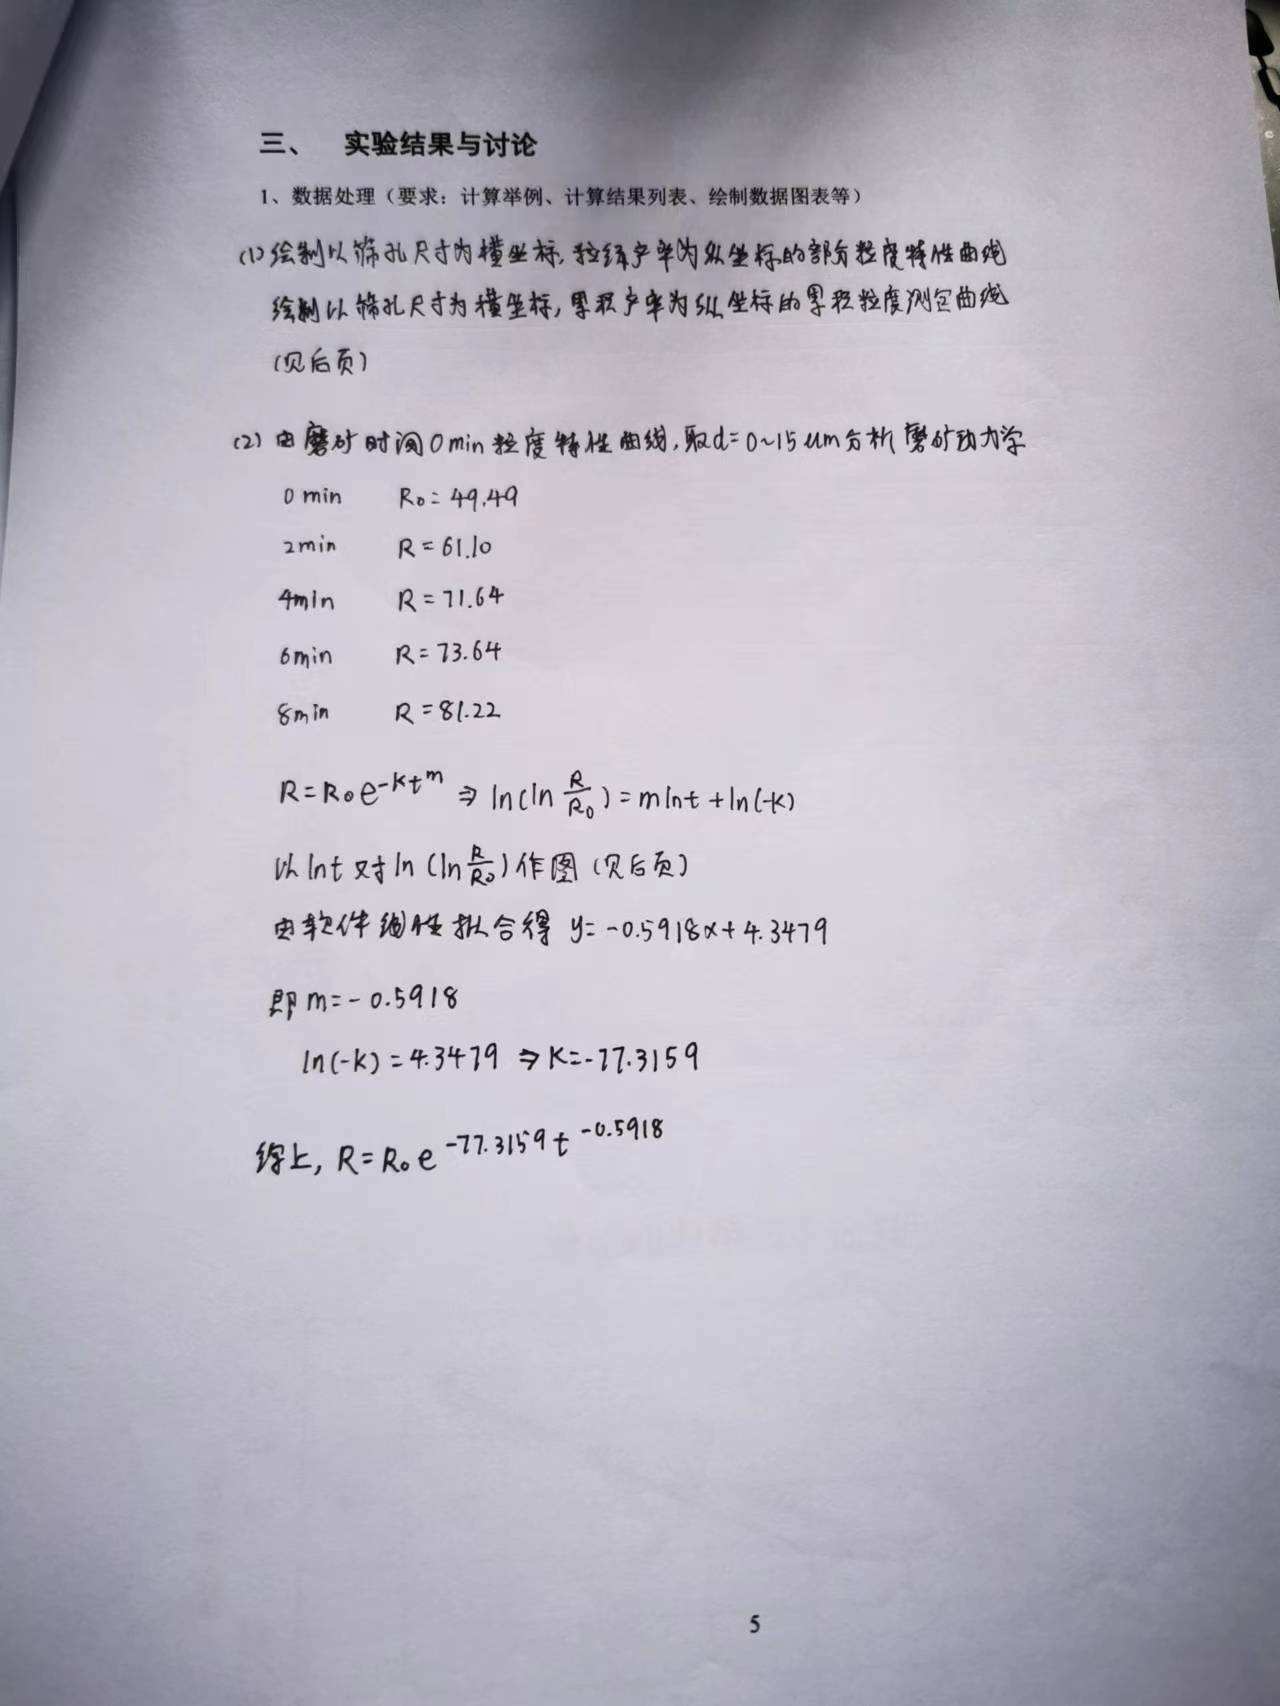 三、 实验结果与讨论
1、数据处理（要求：计算举例、计算结果列表、绘制数据图表等）
(1) 绘制以筛孔尺寸为横坐标,粒级产率为纵坐标的部分粒度特性曲线
绘制以筛孔尺寸为横坐标,累积产率为纵坐标的累积粒度测定曲线
(见后页)
(2) 由磨矿时间0min粒度特性曲线,取d=0~15um分析磨矿动力学
0min R₀=49.49
2min R=61.10
4min R=71.64
6min R=73.64
8min R=81.22
R=R₀e^{-kt^m} ⇒ ln(ln R/R₀)=mlnt+ln(-k)
以lnt对ln(ln R/R₀)作图(见后页)
由软件线性拟合得 y=-0.5918x+4.3479
即m=-0.5918
ln(-k)=4.3479 ⇒K=-77.3159
综上, R=R₀e^{-77.3159t^{-0.5918}}
5